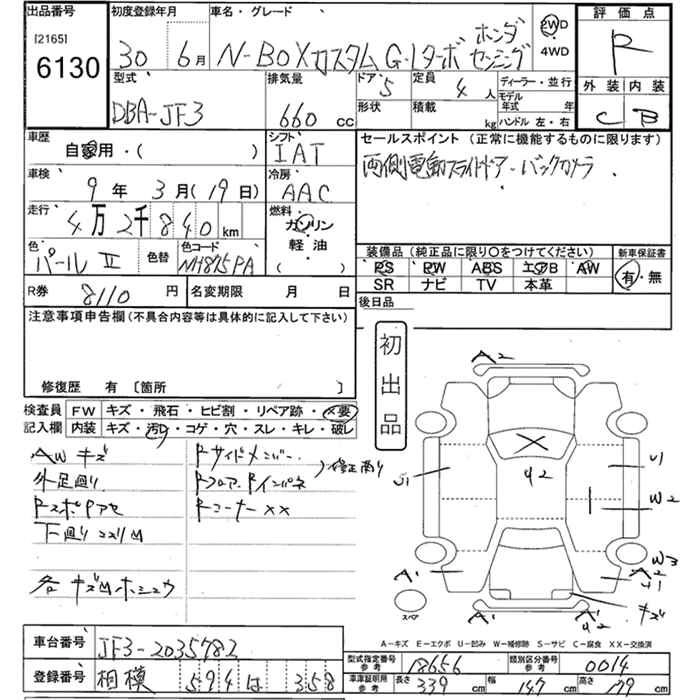 出品番号
[2165]
6130
初度登録年月
30 年 6月
車名・グレード
N-BOXカスタム G・Lターボ ホンダセンシング
2WD
4WD
評価点
R
外装 内装
C B
型式
DBA-JF3
排気量
660 cc
ドア
5
形状
定員
4 人
積載
kg
ディーラー・並行
モデル年式 年
ハンドル 左・右
車歴
自家用・( )
シフト
IAT
セールスポイント (正常に機能するものに限ります)
両側電動スライドドア・バックカメラ
車検
9年 3月(19日)
冷房
AAC
走行
4万2千840km
燃料
ガソリン
軽油
( )
色
パールII
色替
色コード
NH875PA
装備品(純正品に限り〇をつけてください)
PS PW ABS エアB AW
SR ナビ TV 本革
新車保証書
有・無
R券 8110 円
名変期限 月 日
後日品
注意事項申告欄(不具合内容等は具体的に記入して下さい)
修復歴 有 〔箇所 〕
初出品
検査員記入欄
FW キズ・飛石・ヒビ割・リペア跡・×要
内装 キズ・汚レ・コゲ・穴・スレ・キレ・破レ
AWキズ
外足廻り
下廻りスリM
Rサイドメンバー
Rフロア Rインパネ
Rコーナー××
修正有り
A2
U1
U2
U1
W2
W3
A2
U1
A1
A1
キズ
スペア
A-キズ E-エクボ U-凹み W-補修跡 S-サビ C-腐食 XX-交換済
車台番号 JF3-2035782
登録番号 相模 594 は 358
型式指定番号 参考 18656
類別区分番号 参考 0014
車庫証明用 参考 長さ 339 cm 幅 147 cm 高さ 179 cm